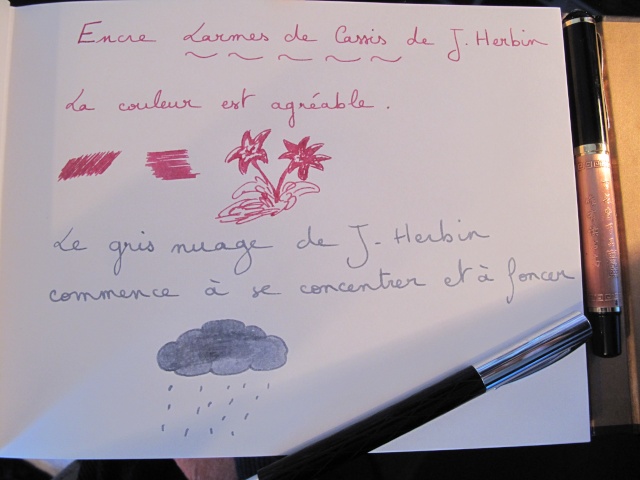 Encre Larmes de Cassis de J. Herbin
La couleur est agréable.
Le gris nuage de J. Herbin
commence à se concentrer et à foncer